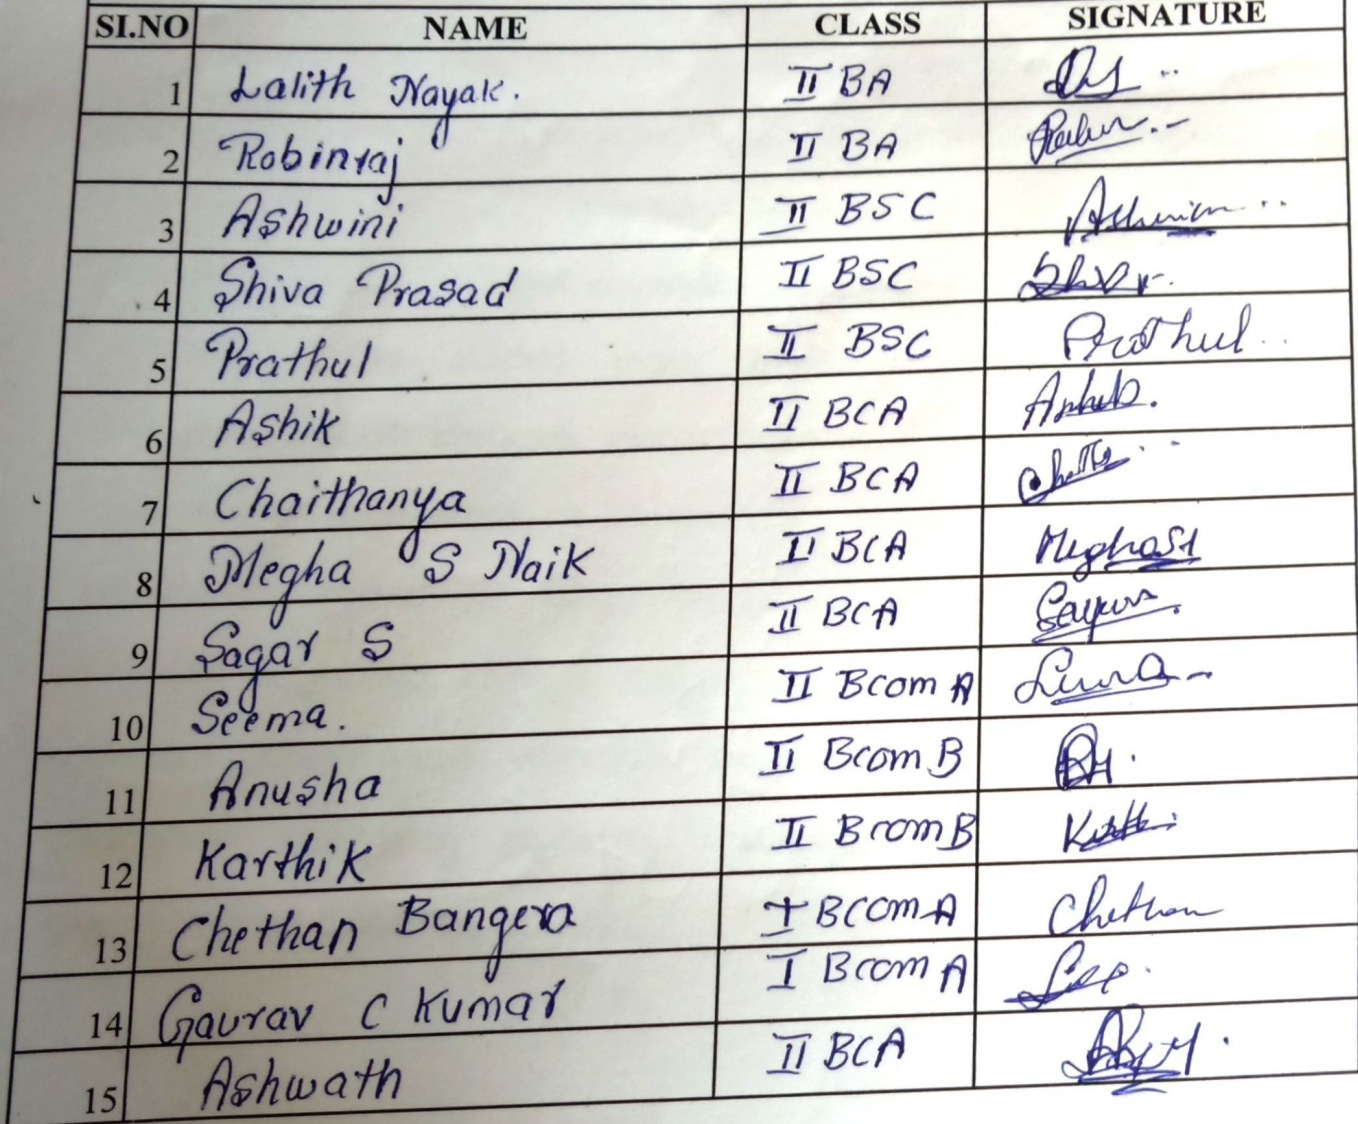 SI.NO NAME CLASS SIGNATURE
1 Lalith Nayak. II BA
2 Robinraj II BA
3 Ashwini II BSC Ashwini
4 Shiva Prasad II BSC
5 Prathul II BSC Prathul
6 Ashik II BCA
7 Chaithanya II BCA
8 Megha S Naik II BCA
9 Sagar S II BCA
10 Seema. II Bcom A
11 Anusha II Bcom B
12 Karthik II Bcom B
13 Chethan Bangera I BCom A Chethan
14 Gaurav C Kumar I Bcom A
15 Ashwath II BCA